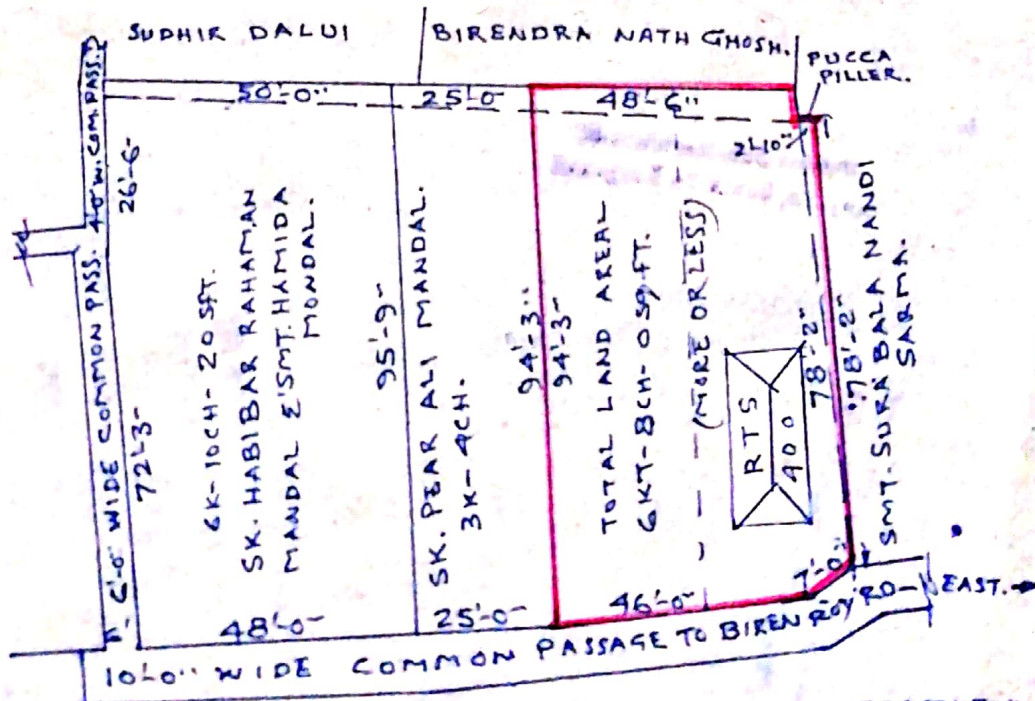 SUDHIR DALUI
BIRENDRA NATH GHOSH.
PUCCA
PILLER.
4'-0" W. COM. PASS.
50'-0"
25'-0
48'-6"
2'-10"
26'-6-
6'-0" WIDE COMMON PASS.
72'-3-
6K-10CH-20 SFT.
SK. HABIBAR RAHAMAN
MANDAL & SMT. HAMIDA
MONDAL.
95'-9-
SK. PEAR ALI MANDAL.
3K-4CH.
94'-3"
94'-3-
TOTAL LAND AREAL
6KT-8CH-0 SQ.FT.
(MORE OR LESS)
RTS
400
78'-2"
78'-2"
SMT. SURA BALA NANDI
SARMA.
48'-0-
25'-0-
46'-0-
7'-0"
EAST.
10'-0" WIDE COMMON PASSAGE TO BIREN ROY RD-